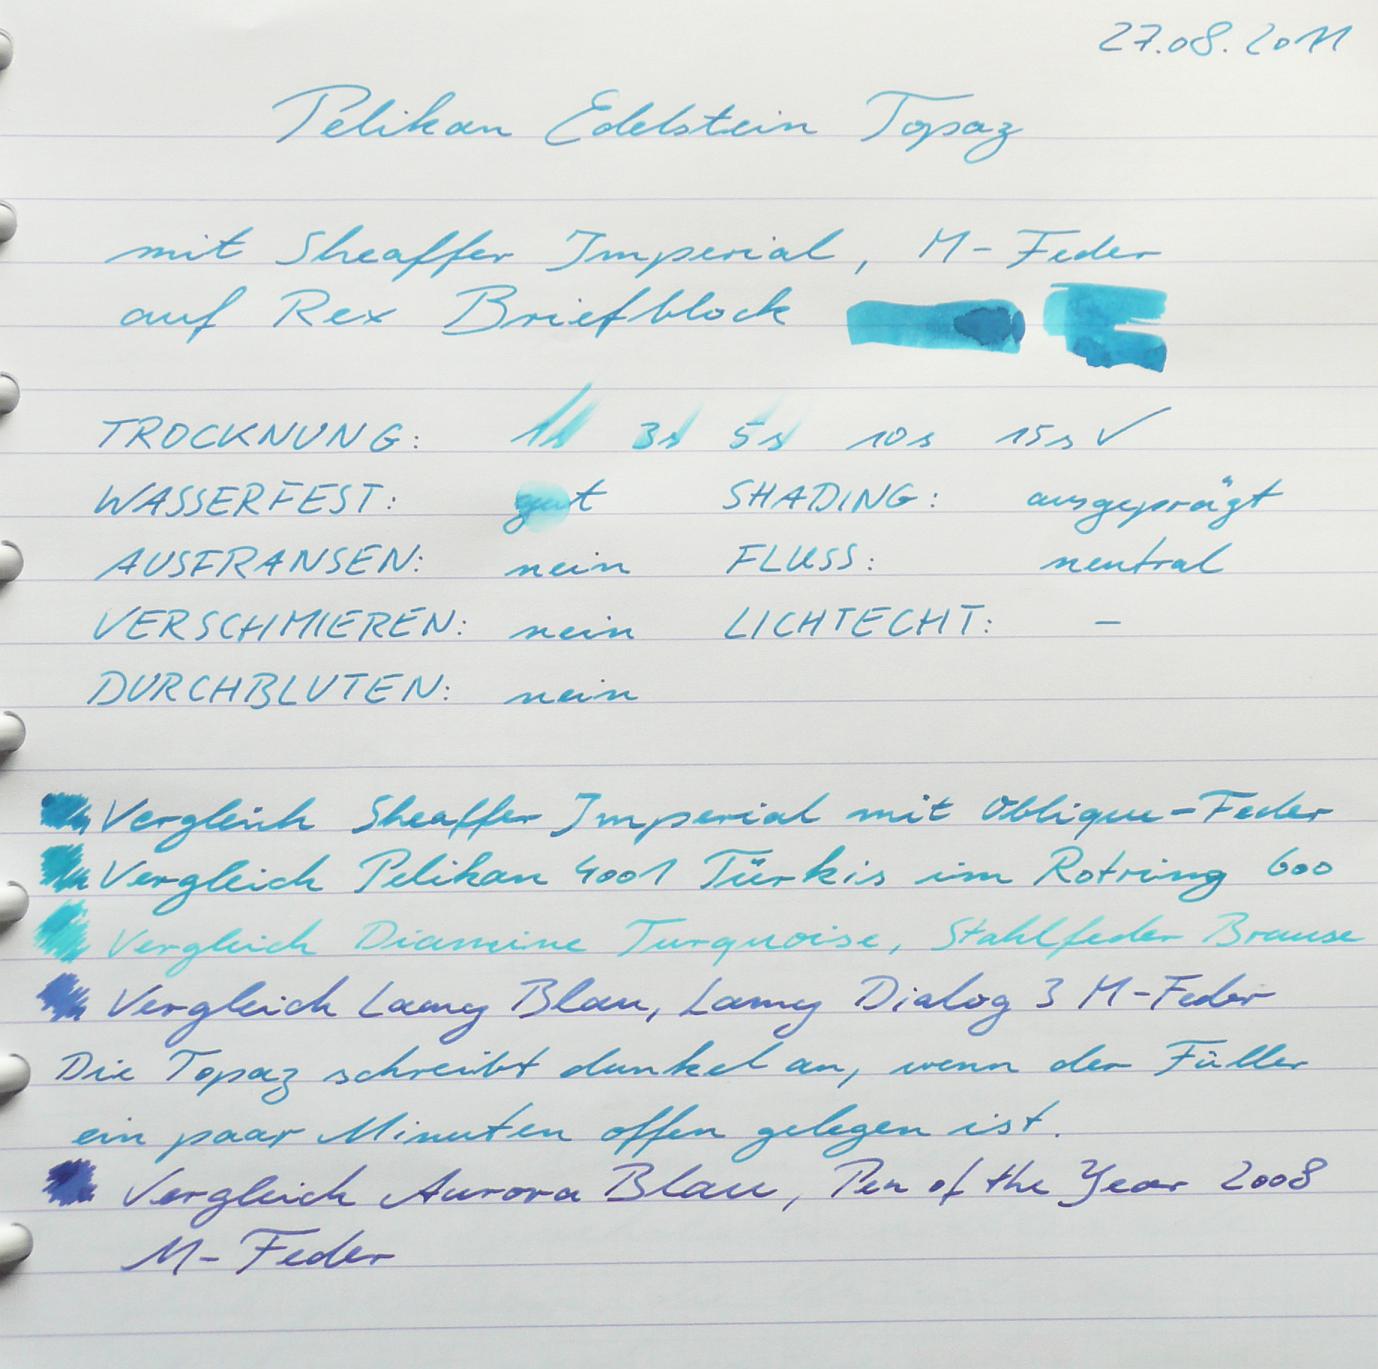 27.08.2011
Pelikan Edelstein Topaz
mit Sheaffer Imperial, M-Feder
auf Rex Briefblock
TROCKNUNG: 1s 3s 5s 10s 15s ✓
WASSERFEST: gut SHADING: ausgeprägt
AUSFRANSEN: nein FLUSS: neutral
VERSCHMIEREN: nein LICHTECHT: –
DURCHBLUTEN: nein
Vergleich Sheaffer Imperial mit Oblique-Feder
Vergleich Pelikan 4001 Türkis im Rotring 600
Vergleich Diamine Turquoise, Stahlfeder Brause
Vergleich Lamy Blau, Lamy Dialog 3 M-Feder
Die Topaz schreibt dunkel an, wenn der Füller
ein paar Minuten offen gelegen ist.
Vergleich Aurora Blau, Pen of the Year 2008
M-Feder